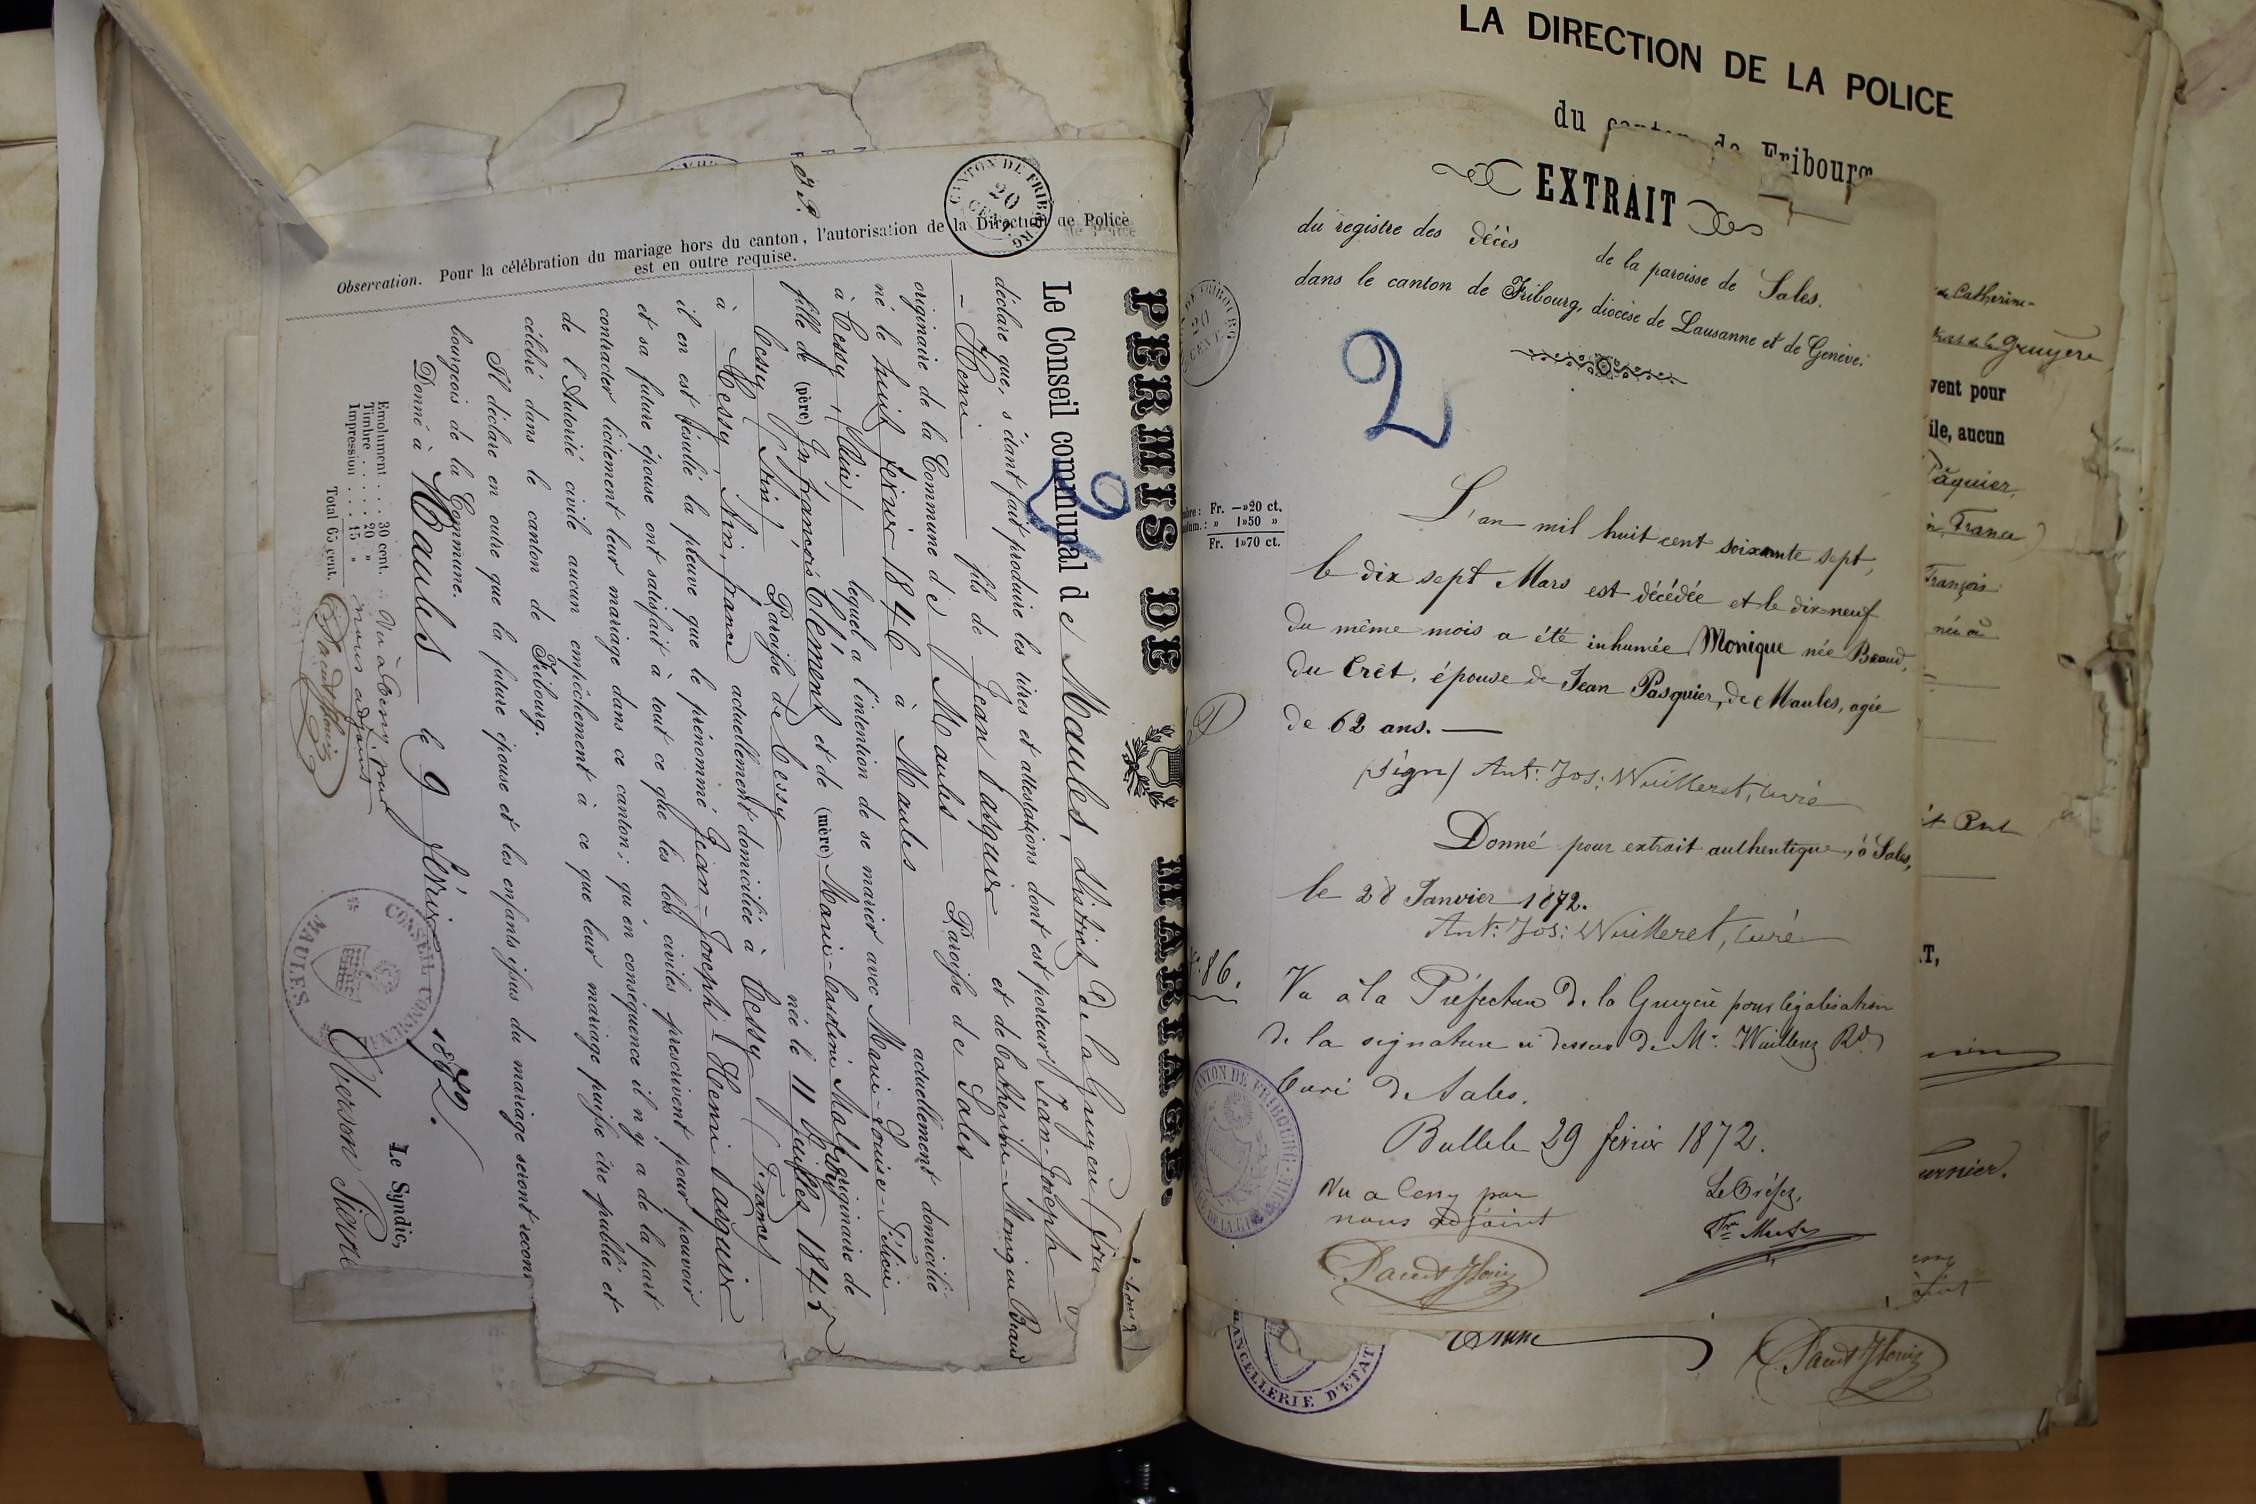 PERMIS DE MARIAGE.
Le Conseil communal de Maules, district de la Gruyère
déclare que, s'étant fait produire les titres et attestations dont est porteur Jean-Joseph
- Henri fils de Jean Pasquier et de Catherine-Monique Braud
originaire de la Commune de Maules Paroisse de Sales
né le huit février 1846 à Maules actuellement domicilié
à Cessy, (Ain) lequel a l'intention de se marier avec Marie-Louise-
fille de (père) Jn François Clément et de (mère) Marie- originaire de
Cessy (Ain) Paroisse de Cessy née le 11 Juillet 184
à Cessy, Ain, france actuellement domiciliée à Cessy (France)
il en est résulté la preuve que le prénommé Jean-Joseph-Henri Pasquier
et sa future épouse ont satisfait à tout ce que les lois civiles prescrivent pour pouvoir
contracter licitement leur mariage dans ce canton; qu'en conséquence il n'y a de la part
de l'Autorité civile aucun empêchement à ce que leur mariage puisse être publié et
célébré dans le canton de Fribourg.
Il déclare en outre que la future épouse et les enfants issus du mariage seront reconn
bourgeois de la Commune.
Donné à Maules le 9 février 1872.
Le Syndic,
Oberson Pierre
Emolument . . . 30 cent.
Timbre . . . . 20 »
Impression . . . 15 »
Total 65 cent.
Vu à Cessy par
nous adjoint
CONSEIL COMMUNAL
MAULES
CANTON DE FRIBOURG
20
CENT.
Observation. Pour la célébration du mariage hors du canton, l'autorisation de la Direction de Police
est en outre requise.
2
LA DIRECTION DE LA POLICE
du canton de Fribourg
EXTRAIT
du registre des décès de la paroisse de Sales.
dans le canton de Fribourg, diocèse de Lausanne et de Genève.
2
Fr. —»20 ct.
» 1»50 »
Fr. 1»70 ct.
L'an mil huit cent soixante sept,
le dix sept Mars est décédée et le dix-neuf
du même mois a été inhumée Monique née Braud,
du Crêt, épouse de Jean Pasquier, de Maules, agée
de 62 ans. —
(Sign) Ant: Jos: Wuilleret, curé
Donné pour extrait authentique, à Sales,
le 28 Janvier 1872.
Ant: Jos: Wuilleret, curé
86.
Vu à la Préfecture de la Gruyère pour légalisation
de la signature ci dessus de Mr. Wuilleret Rd
Curé de Sales.
Bulle le 29 février 1872.
Le Préfet,
Vu a Cessy par
nous adjoint
CHANCELLERIE D'ETAT
Catherine-
Gruyère
vent pour
ile, aucun
Pâquier,
France)
François
née à